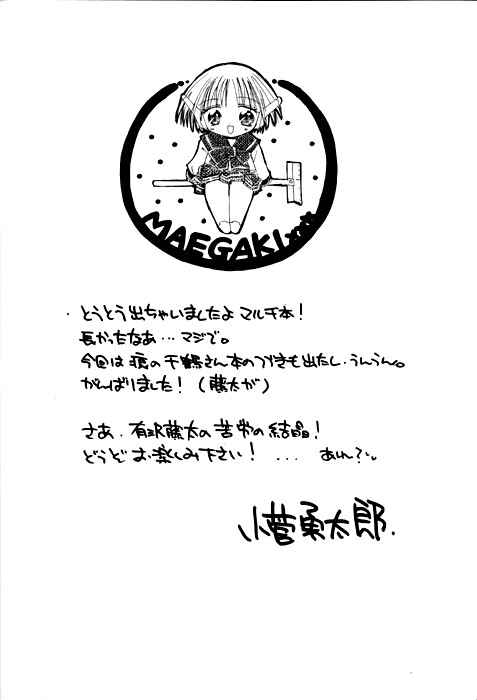 MAEGAKI
とうとう出ちゃいましたよ マルチ本!
長かったなあ…マジで。
今回は 痕の千鶴さん本のつづきも出たし、うんうん。
がんばりました!(藤太が)
さあ、有沢藤太の苦労の結晶!
どうぞお楽しみ下さい! ... あれ?
小菅勇太郎.